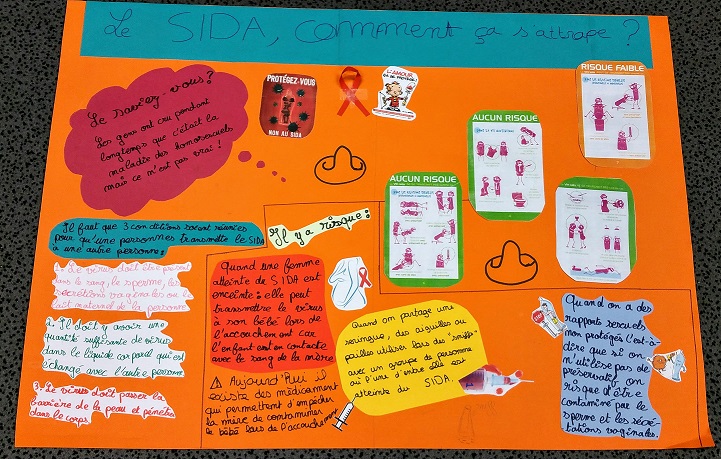 Le SIDA, comment ça s'attrape ?
Le saviez-vous ?
Les gens ont cru pendant
longtemps que c'était la
maladie des homosexuels
mais ce n'est pas vrai !
PROTÉGEZ-VOUS
NON AU SIDA
L'AMOUR
RISQUE FAIBLE
AUCUN RISQUE
AUCUN RISQUE
Il faut que 3 conditions soient réunies
pour qu'une personnes transmette le SIDA
a une autre personne :
1. Le virus doit être présent
dans le sang, le sperme, les
secrétions vaginales ou le
lait maternel de la personne
2. Il doit y avoir une
quantité suffisante de virus
dans le liquide corporel qui est
échangé avec l'autre personne
3. Le virus doit passer la
barrière de la peau et pénétrer
dans le corps.
Il y a risque :
Quand une femme
atteinte de SIDA est
enceinte : elle peut
transmettre le virus
à son bébé lors de
l'accouchement car
l'enfant est en contacte
avec le sang de la mère
Aujourd'hui il
existe des médicament
qui permettent d'empêcher
la mère de contaminer
le bébé lors de l'accouchement
Quand on partage une
seringue, des aiguilles ou
pailles utiliser lors des "sniffs"
avec un groupe de personne
où l'une d'entre elle est
atteinte du SIDA.
Quand on a des
rapports sexuels
non protégés (c'est-à-
dire que si on
n'utilise pas de
préservatif) on
risque d'être
contaminé par le
sperme et les sécré-
tations vaginales.